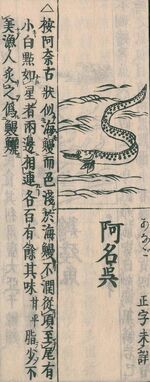 阿名呉
あなご
正字未詳
△按阿奈古狀似海鰻而色淺於海鰻不潤從項至尾有
小白點如星者兩邊相連各百有餘其味甘平脂少不
美漁人炙之僞鰻鱺